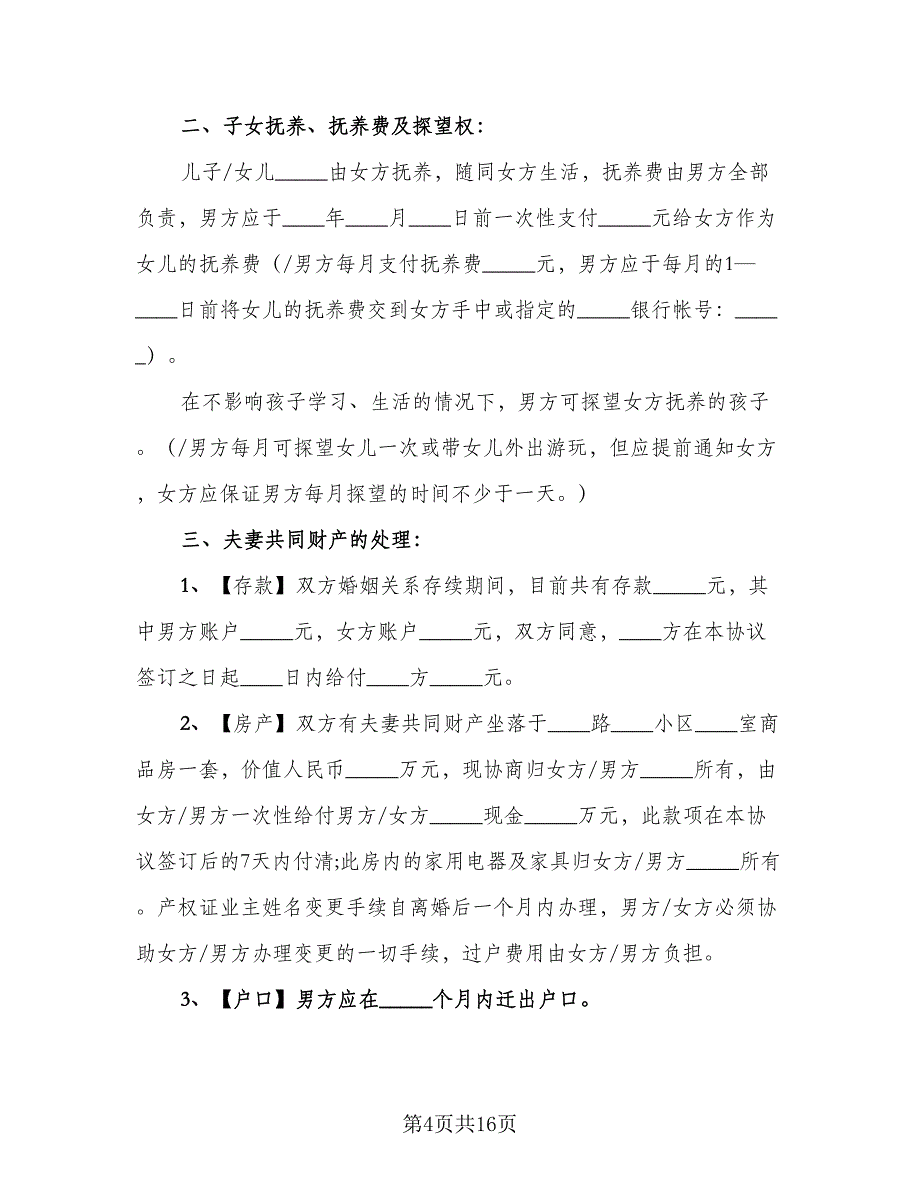 二、子女抚养、抚养费及探望权：
儿子/女儿_____由女方抚养，随同女方生活，抚养费由男方全部
负责，男方应于____年____月____日前一次性支付_____元给女方作为
女儿的抚养费（/男方每月支付抚养费_____元，男方应于每月的1—
____日前将女儿的抚养费交到女方手中或指定的_____银行帐号：____
_）。
在不影响孩子学习、生活的情况下，男方可探望女方抚养的孩子
。（/男方每月可探望女儿一次或带女儿外出游玩，但应提前通知女方
，女方应保证男方每月探望的时间不少于一天。）
三、夫妻共同财产的处理：
1、【存款】双方婚姻关系存续期间，目前共有存款_____元，其
中男方账户_____元，女方账户_____元，双方同意，____方在本协议
签订之日起____日内给付____方_____元。
2、【房产】双方有夫妻共同财产坐落于____路____小区____室商
品房一套，价值人民币_____万元，现协商归女方/男方_____所有，由
女方/男方一次性给付男方/女方_____现金_____万元，此款项在本协
议签订后的7天内付清;此房内的家用电器及家具归女方/男方_____所有
。产权证业主姓名变更手续自离婚后一个月内办理，男方/女方必须协
助女方/男方办理变更的一切手续，过户费用由女方/男方负担。
3、【户口】男方应在_____个月内迁出户口。
第4页共16页